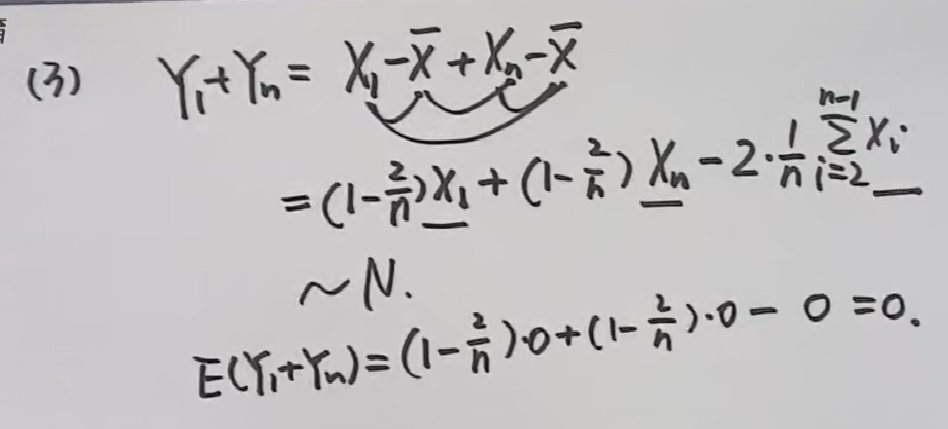 (3) Y₁+Yₙ = X₁-X̄+Xₙ-X̄
=(1-2/n)X₁+(1-2/n)Xₙ-2·1/n∑ᵢ₌₂ⁿ⁻¹Xᵢ
~N.
E(Y₁+Yₙ)=(1-2/n)·0+(1-2/n)·0-0=0.